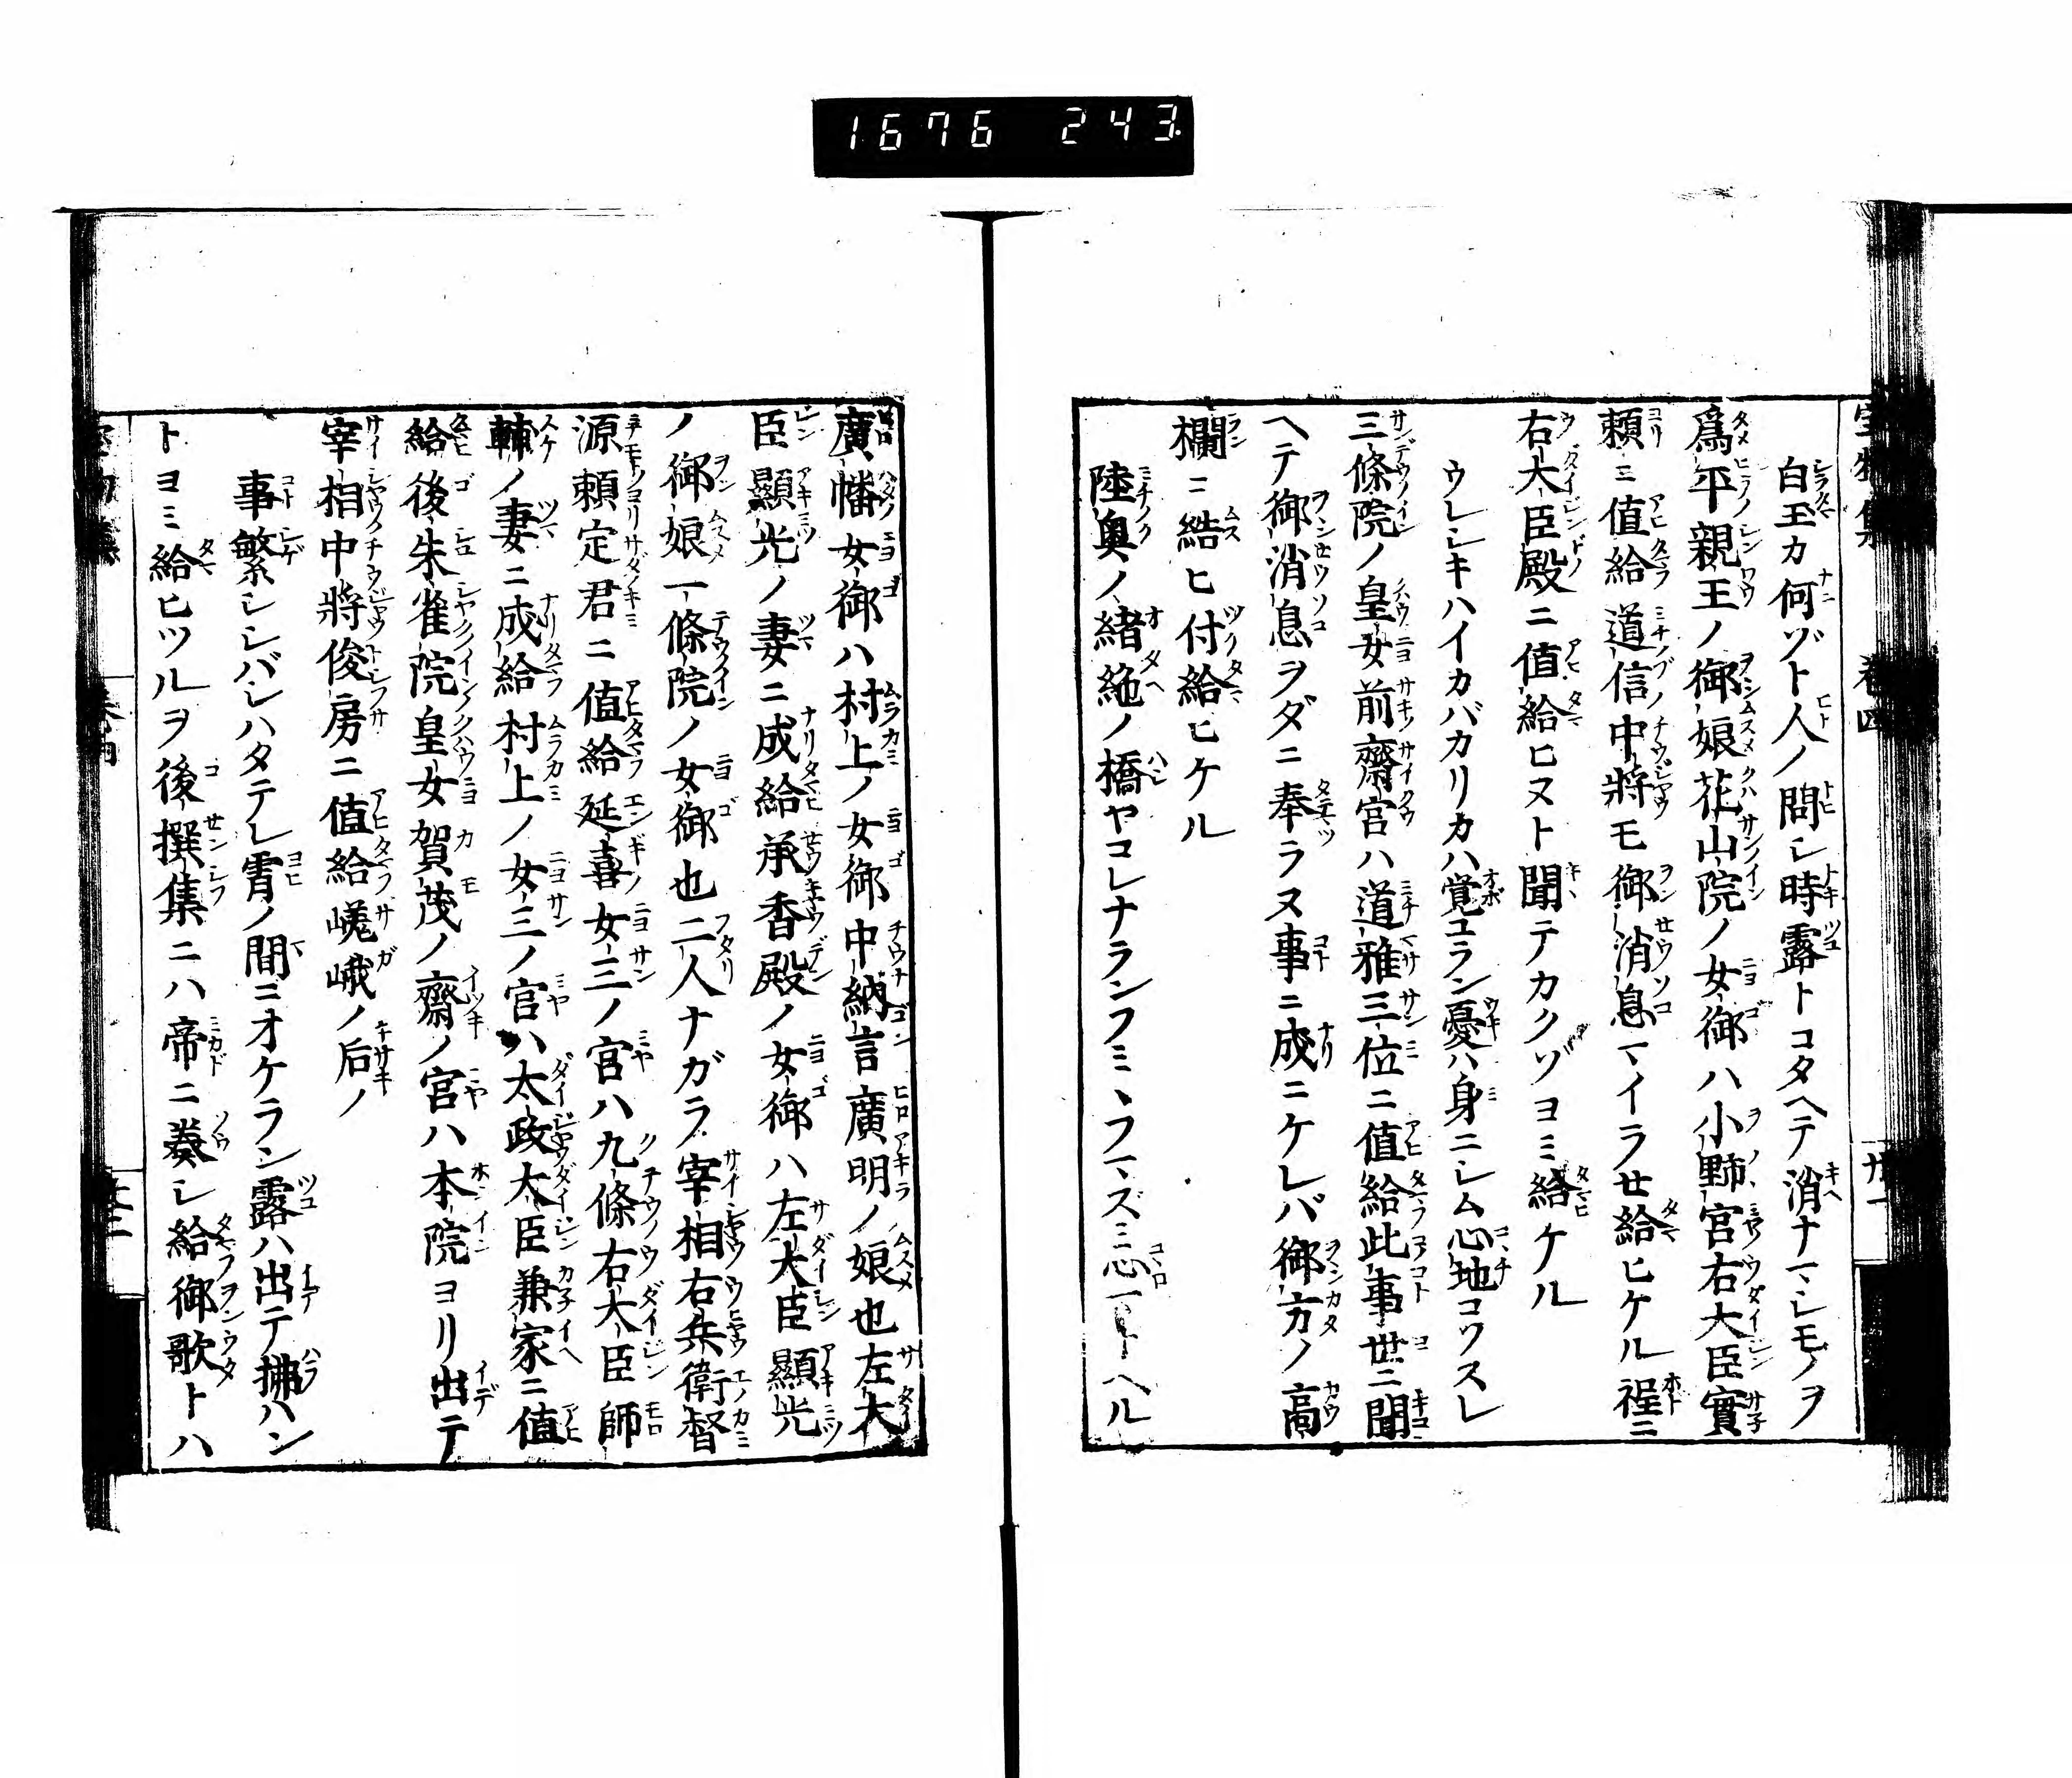 1676 243.
白玉カ何ゾト人ノ問シ時露トコタヘテ消ナマシモノヲ
爲平親王ノ御娘花山院ノ女御ハ小野宮右大臣實
頼ニ値給道信中將モ御消息マイラせ給ヒケル程ニ
右大臣殿ニ値給ヒヌト聞テカクゾヨミ給ケル
ウレシキハイカバカリカハ覚ユラン憂ハ身ニシム心地コソスレ
三條院ノ皇女前齋宮ハ道雅三位ニ値給此事世ニ聞
ヘテ御消息ヲダニ奉ラヌ事ニ成ニケレバ御方ノ高
欄ニ結ヒ付給ヒケル
陸奥ノ緒絶ノ橋ヤコレナランフミヽフマズミ心マトヘル
廣幡女御ハ村上ノ女御中納言廣明ノ娘也左大
臣顯光ノ妻ニ成給承香殿ノ女御ハ左大臣顯光
ノ御娘一條院ノ女御也二人ナガラ宰相右兵衛督
源頼定君ニ値給延喜女三ノ宮ハ九條右大臣師
輔ノ妻ニ成給村上ノ女三ノ宮ハ太政大臣兼家ニ値
給後朱雀院皇女賀茂ノ齋ノ宮ハ本院ヨリ出テ
宰相中將俊房ニ値給嵯峨ノ后ノ
事繁シシバシハタテレ霄ノ間ニオケラン露ハ出テ拂ハン
トヨミ給ヒツルヲ後撰集ニハ帝ニ奏シ給御歌トハ